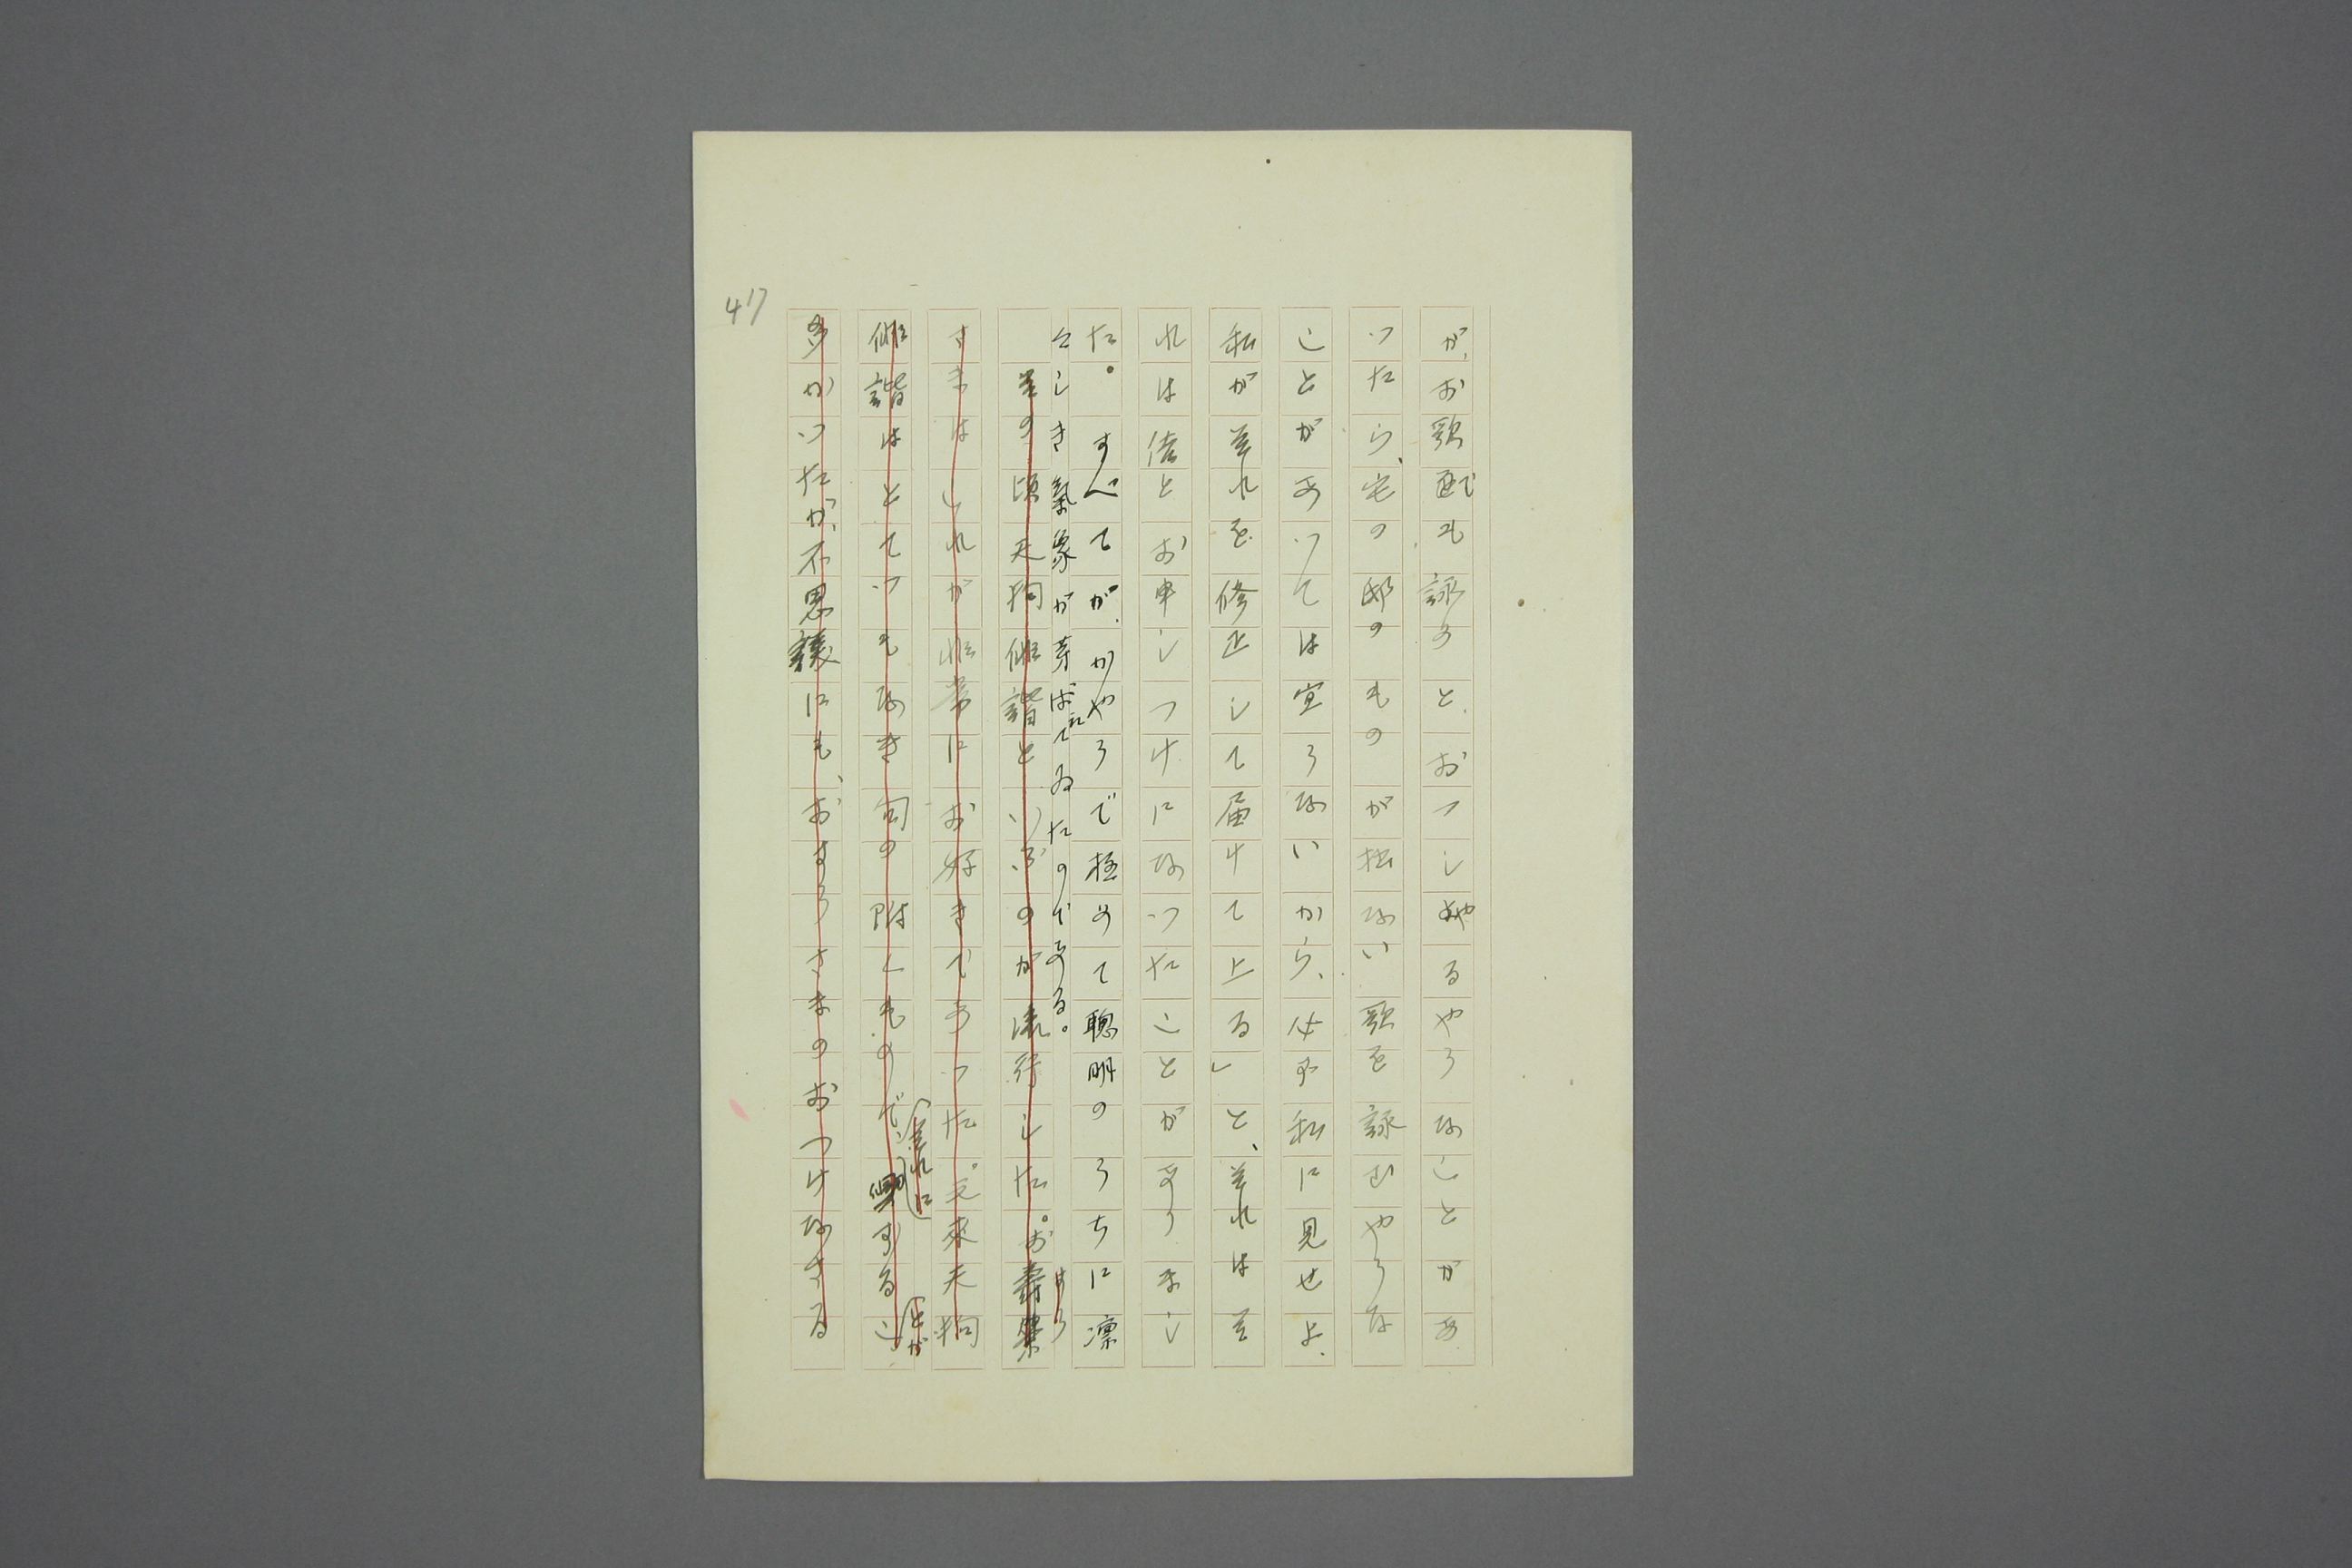 が、お歌でも詠めと、おつしやるやうなことがあ
つたら、宅の邸のものが拙ない歌を詠むやうな
ことがあつては宜ろないから、必ず私に見せよ、
私が其れを修正して届けて上る」と、其れは其
れは倍とお申しつけになつたことがありまし
た。すべてが、かやうで極めて聰明のうちに凛
々しき氣象が芽ばえてゐたのである。
其の頃天狗俳諧といふのが流行した。おすう
さまはこれが非常にお好きであつた。元來天狗
俳諧はとてつもなき句の附くもので、(其れに)興すること(とが)
多かつたが、不思議にも、おすうさまのおつけなさる
417